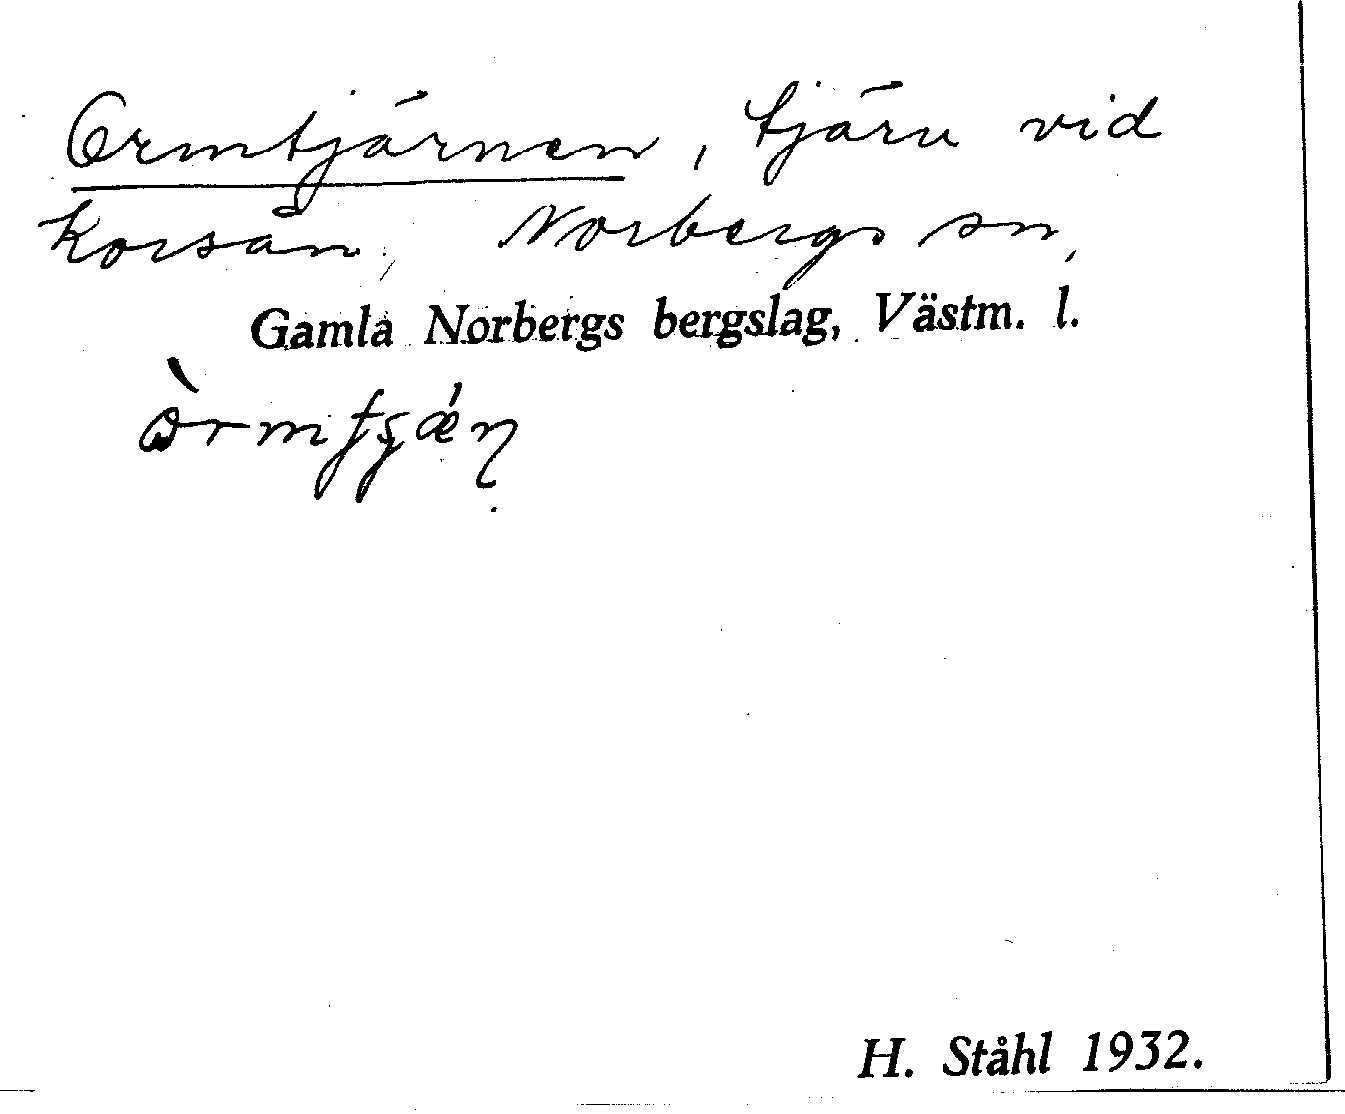 Ormtjärnen, tjärn vid
Korsån, Norbergs sn,
Gamla Norbergs bergslag, Västm. l.
H. Ståhl 1932.